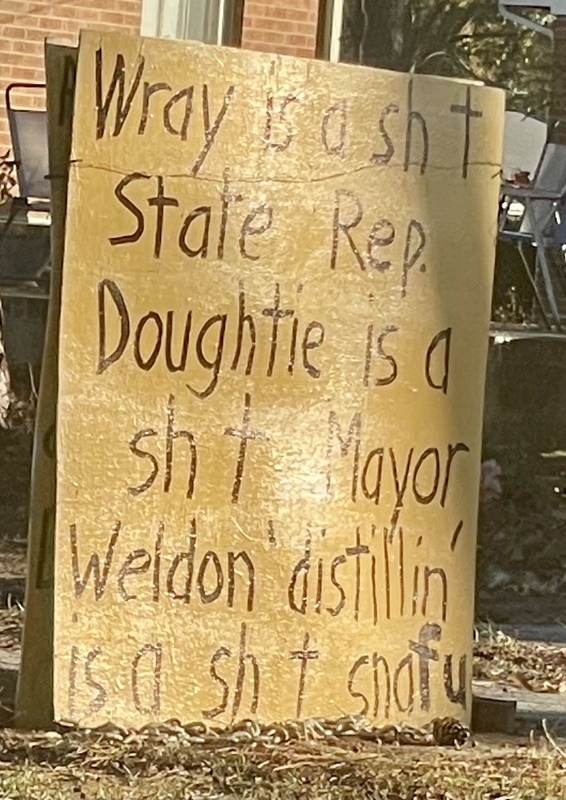 Wray is a sh t
State Rep.
Doughtie is a
sh t Mayor
Weldon 'distillin'
is a sh t snafu